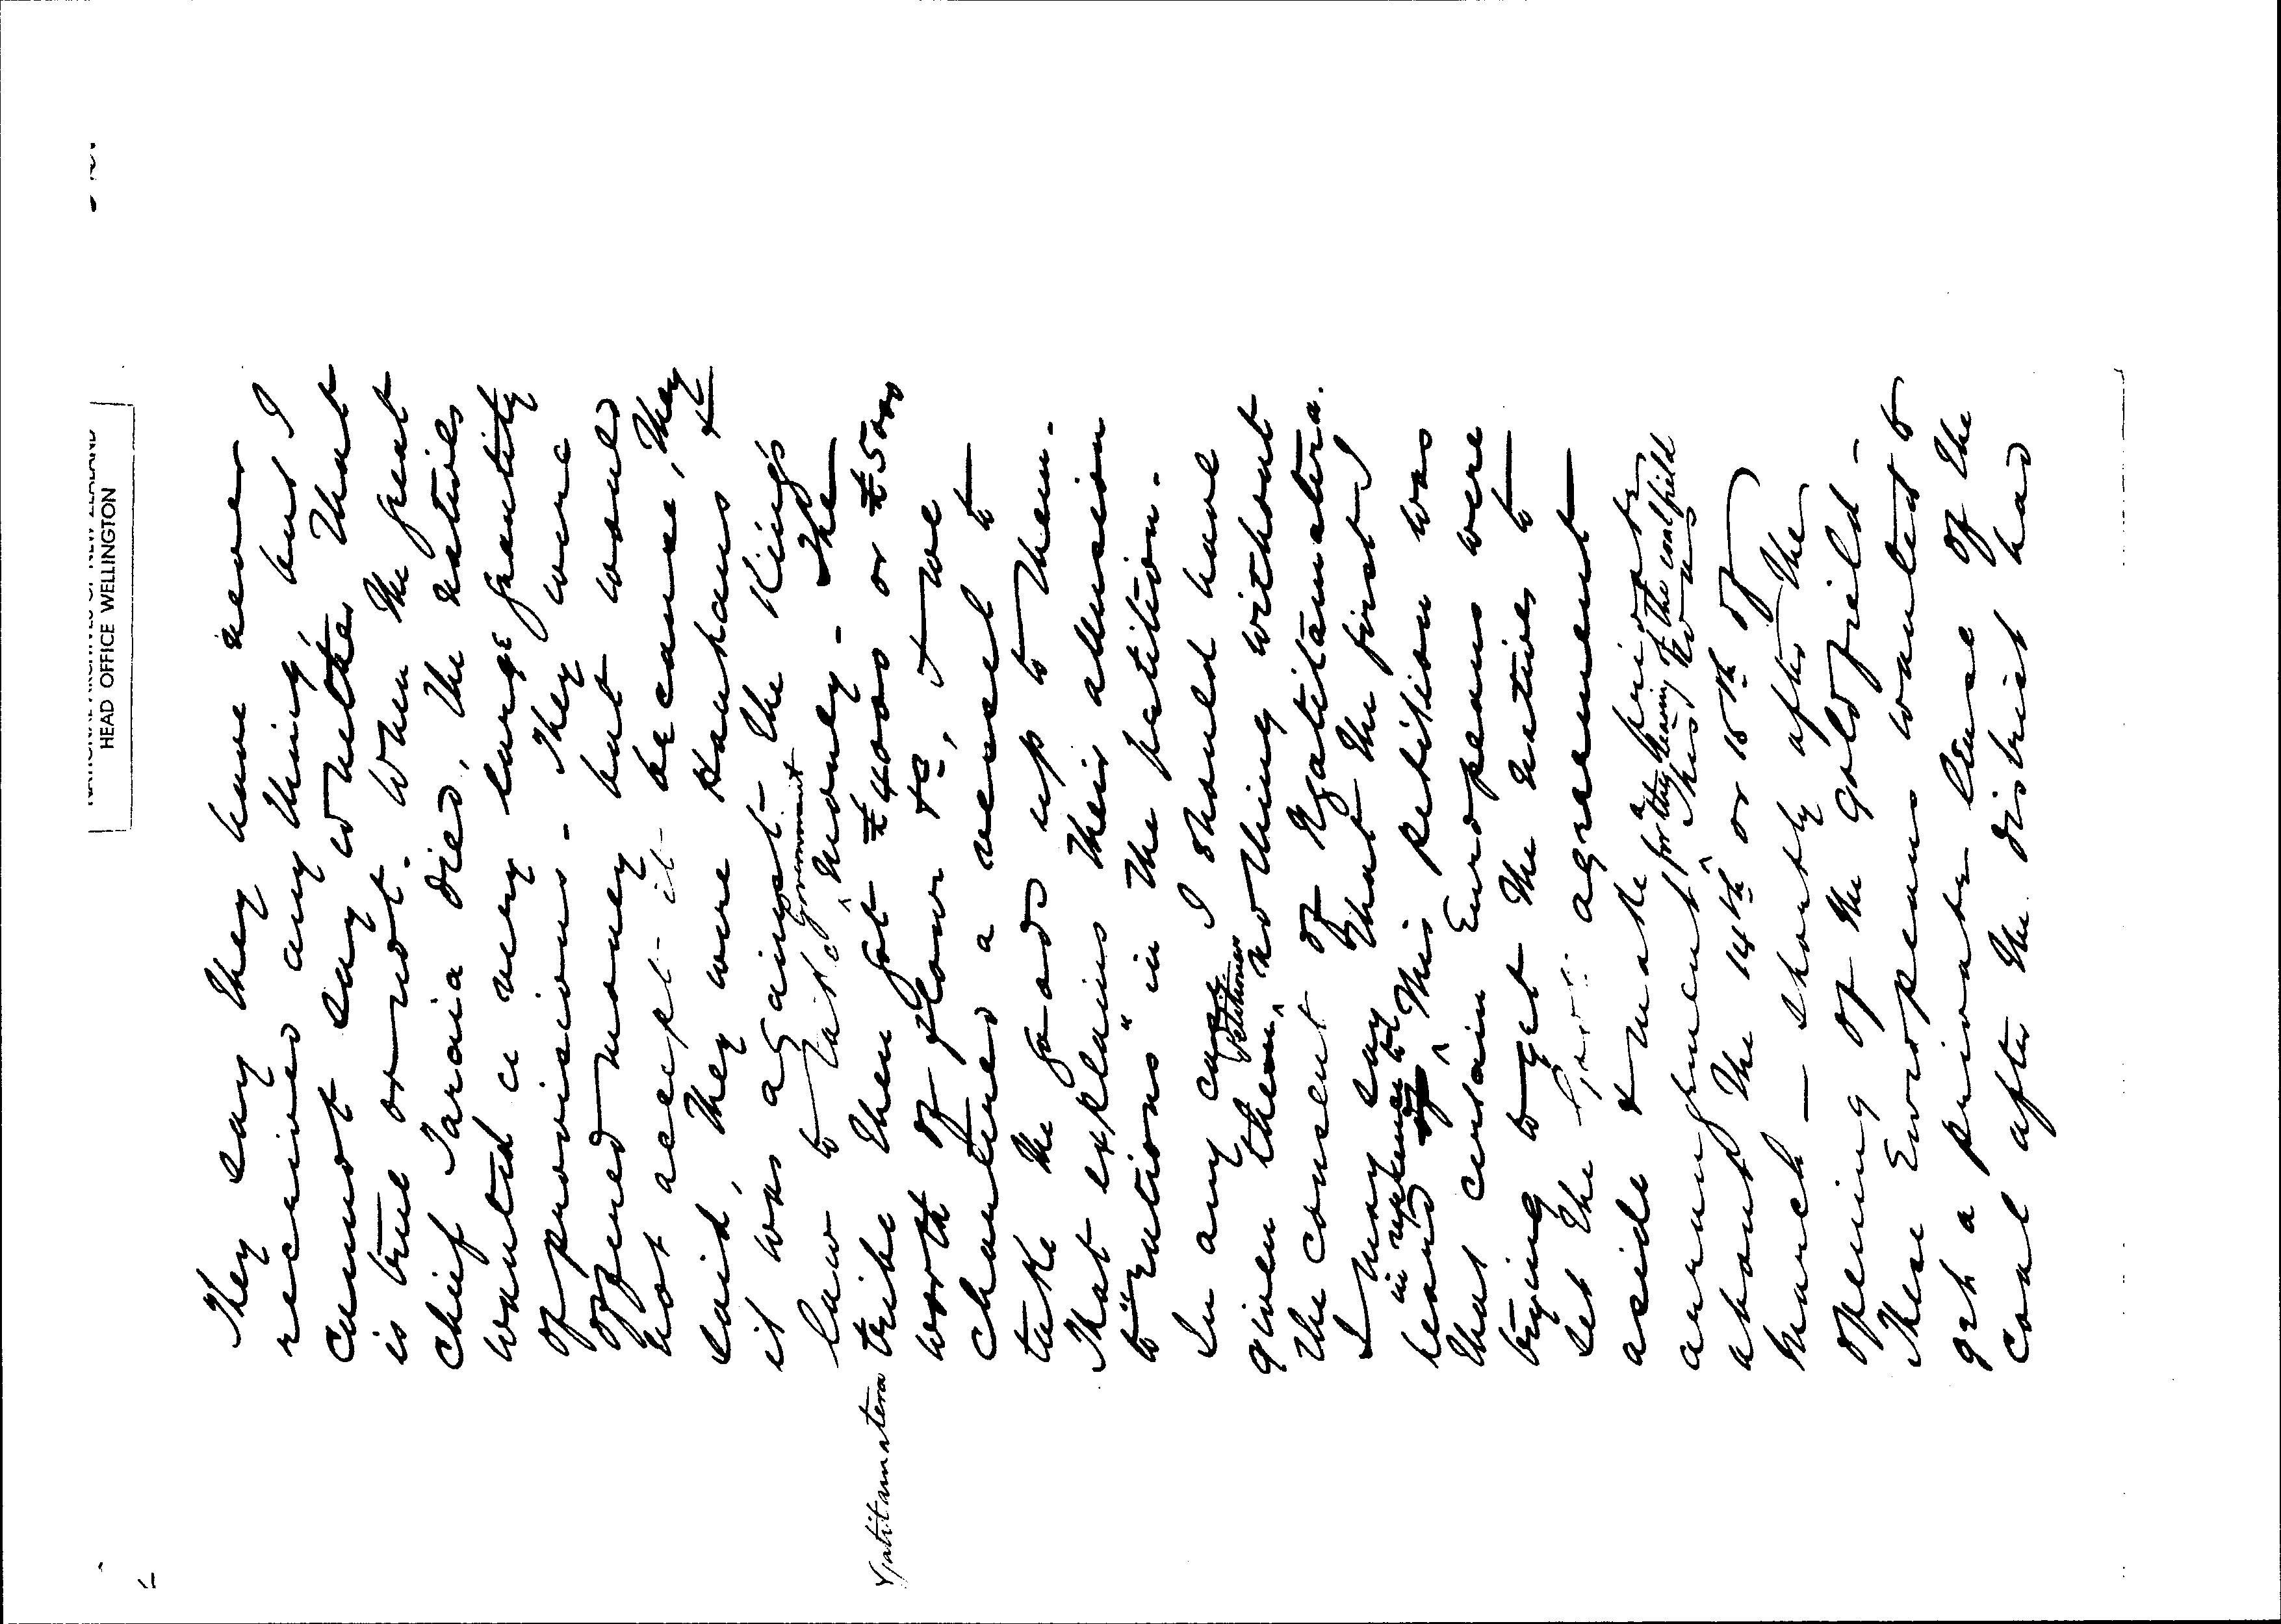 NATIONAL ARCHIVES OF NEW ZEALAND
HEAD OFFICE WELLINGTON
They say they have never
received any thing, but I
cannot say whether that
is true or not. When the great
chief Taraia died, the natives
wanted a very large quantity
of provisions - They were
offered money but would
not accept it because, they
said, they were Hauhaus &
it was against the King's
law to take Government money - The
Ngatitamatera tribe then got £4000 or £5000
worth of flour &c, & we
chartered a vessel to
take the goods up to them.
That explains their allusion
to "rations" in the petition.
In any case I should have
given the Petitioners nothing without
the consent of Ngatitamatera.
I may say that the first I
heard in reference to this petition was
that certain Europeans were
trying to get the natives to
set the Govt. agreement
aside & make a private
arrangement for the leasing of the coalfield This was
about the 14th or 15th of
March - shortly after the
opening of the goldfield -
These Europeans wanted to
get a private lease of the
coal after the district had